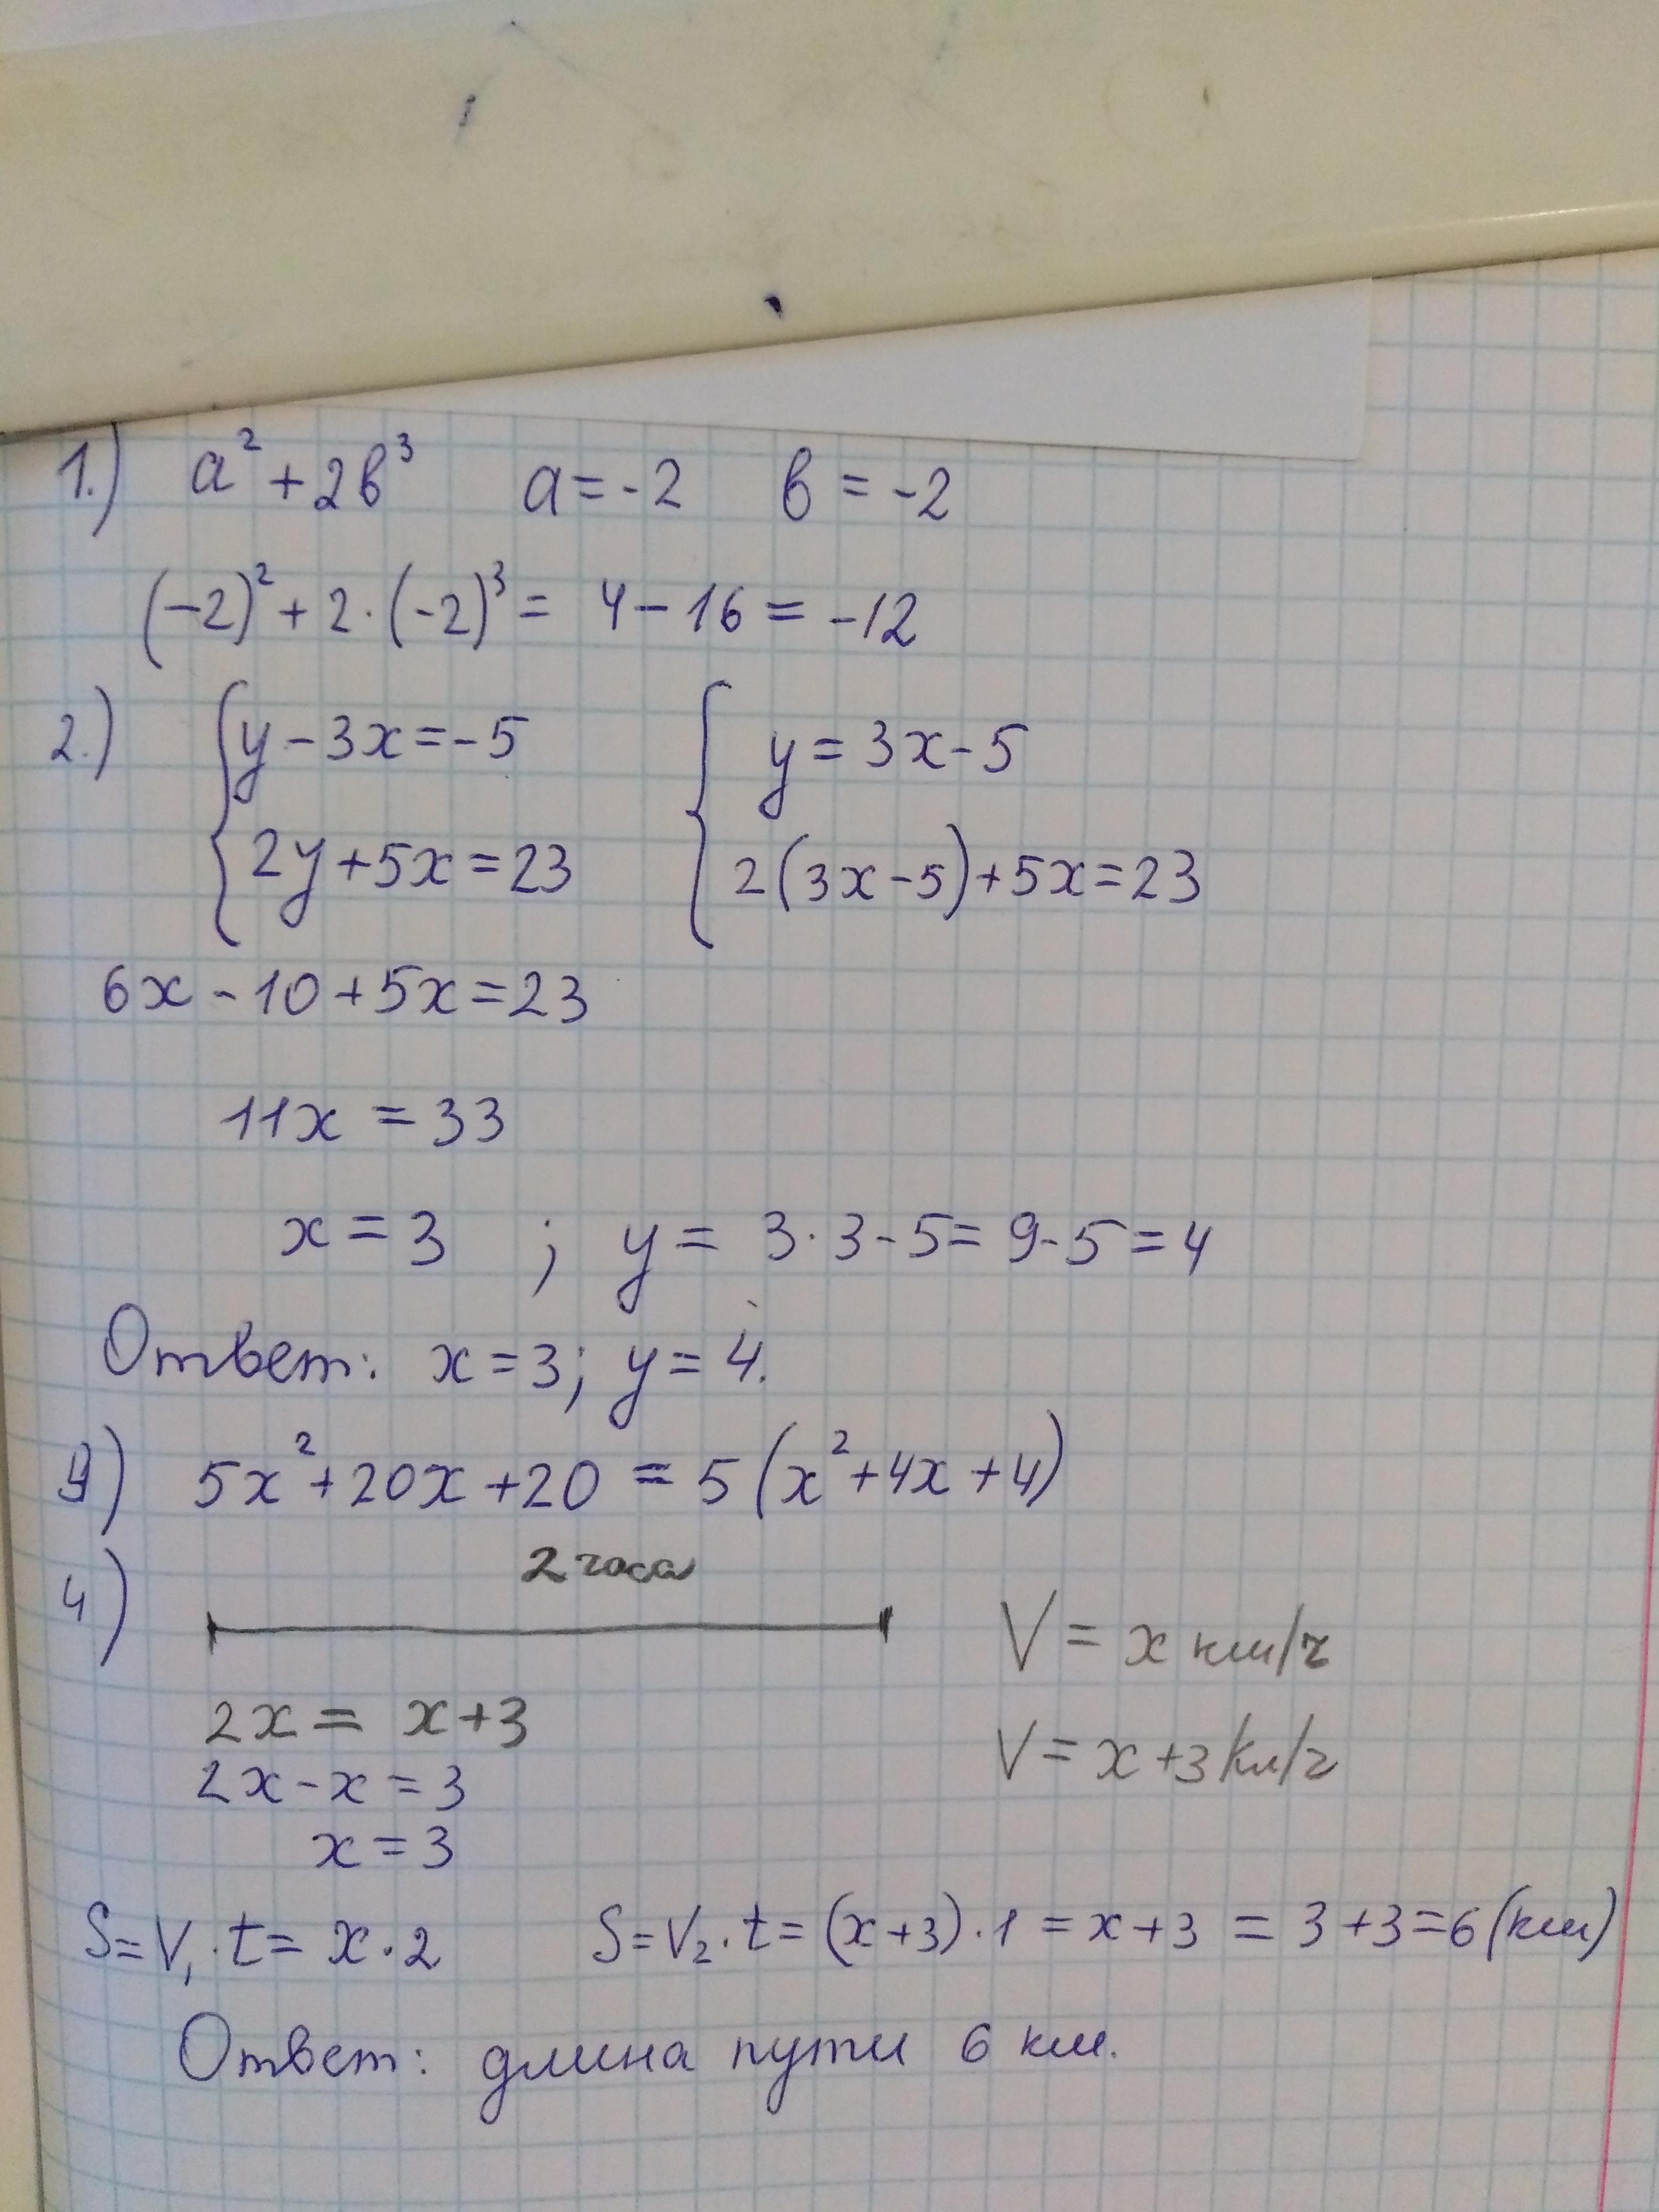 1.) a² + 2в³ a = -2 в = -2
(-2)² + 2·(-2)³ = 4 - 16 = -12
2.) { y - 3x = -5 { y = 3x - 5
2y + 5x = 23 2(3x - 5) + 5x = 23
6x - 10 + 5x = 23
11x = 33
x = 3 ; y = 3·3 - 5 = 9 - 5 = 4
Ответ: x = 3; y = 4.
3) 5x² + 20x + 20 = 5(x² + 4x + 4)
2 часа
4) V = x км/ч
2x = x + 3
V = x + 3 км/ч
2x - x = 3
x = 3
S = V₁·t = x·2 S = V₂·t = (x + 3)·1 = x + 3 = 3 + 3 = 6 (км)
Ответ: длина пути 6 км.